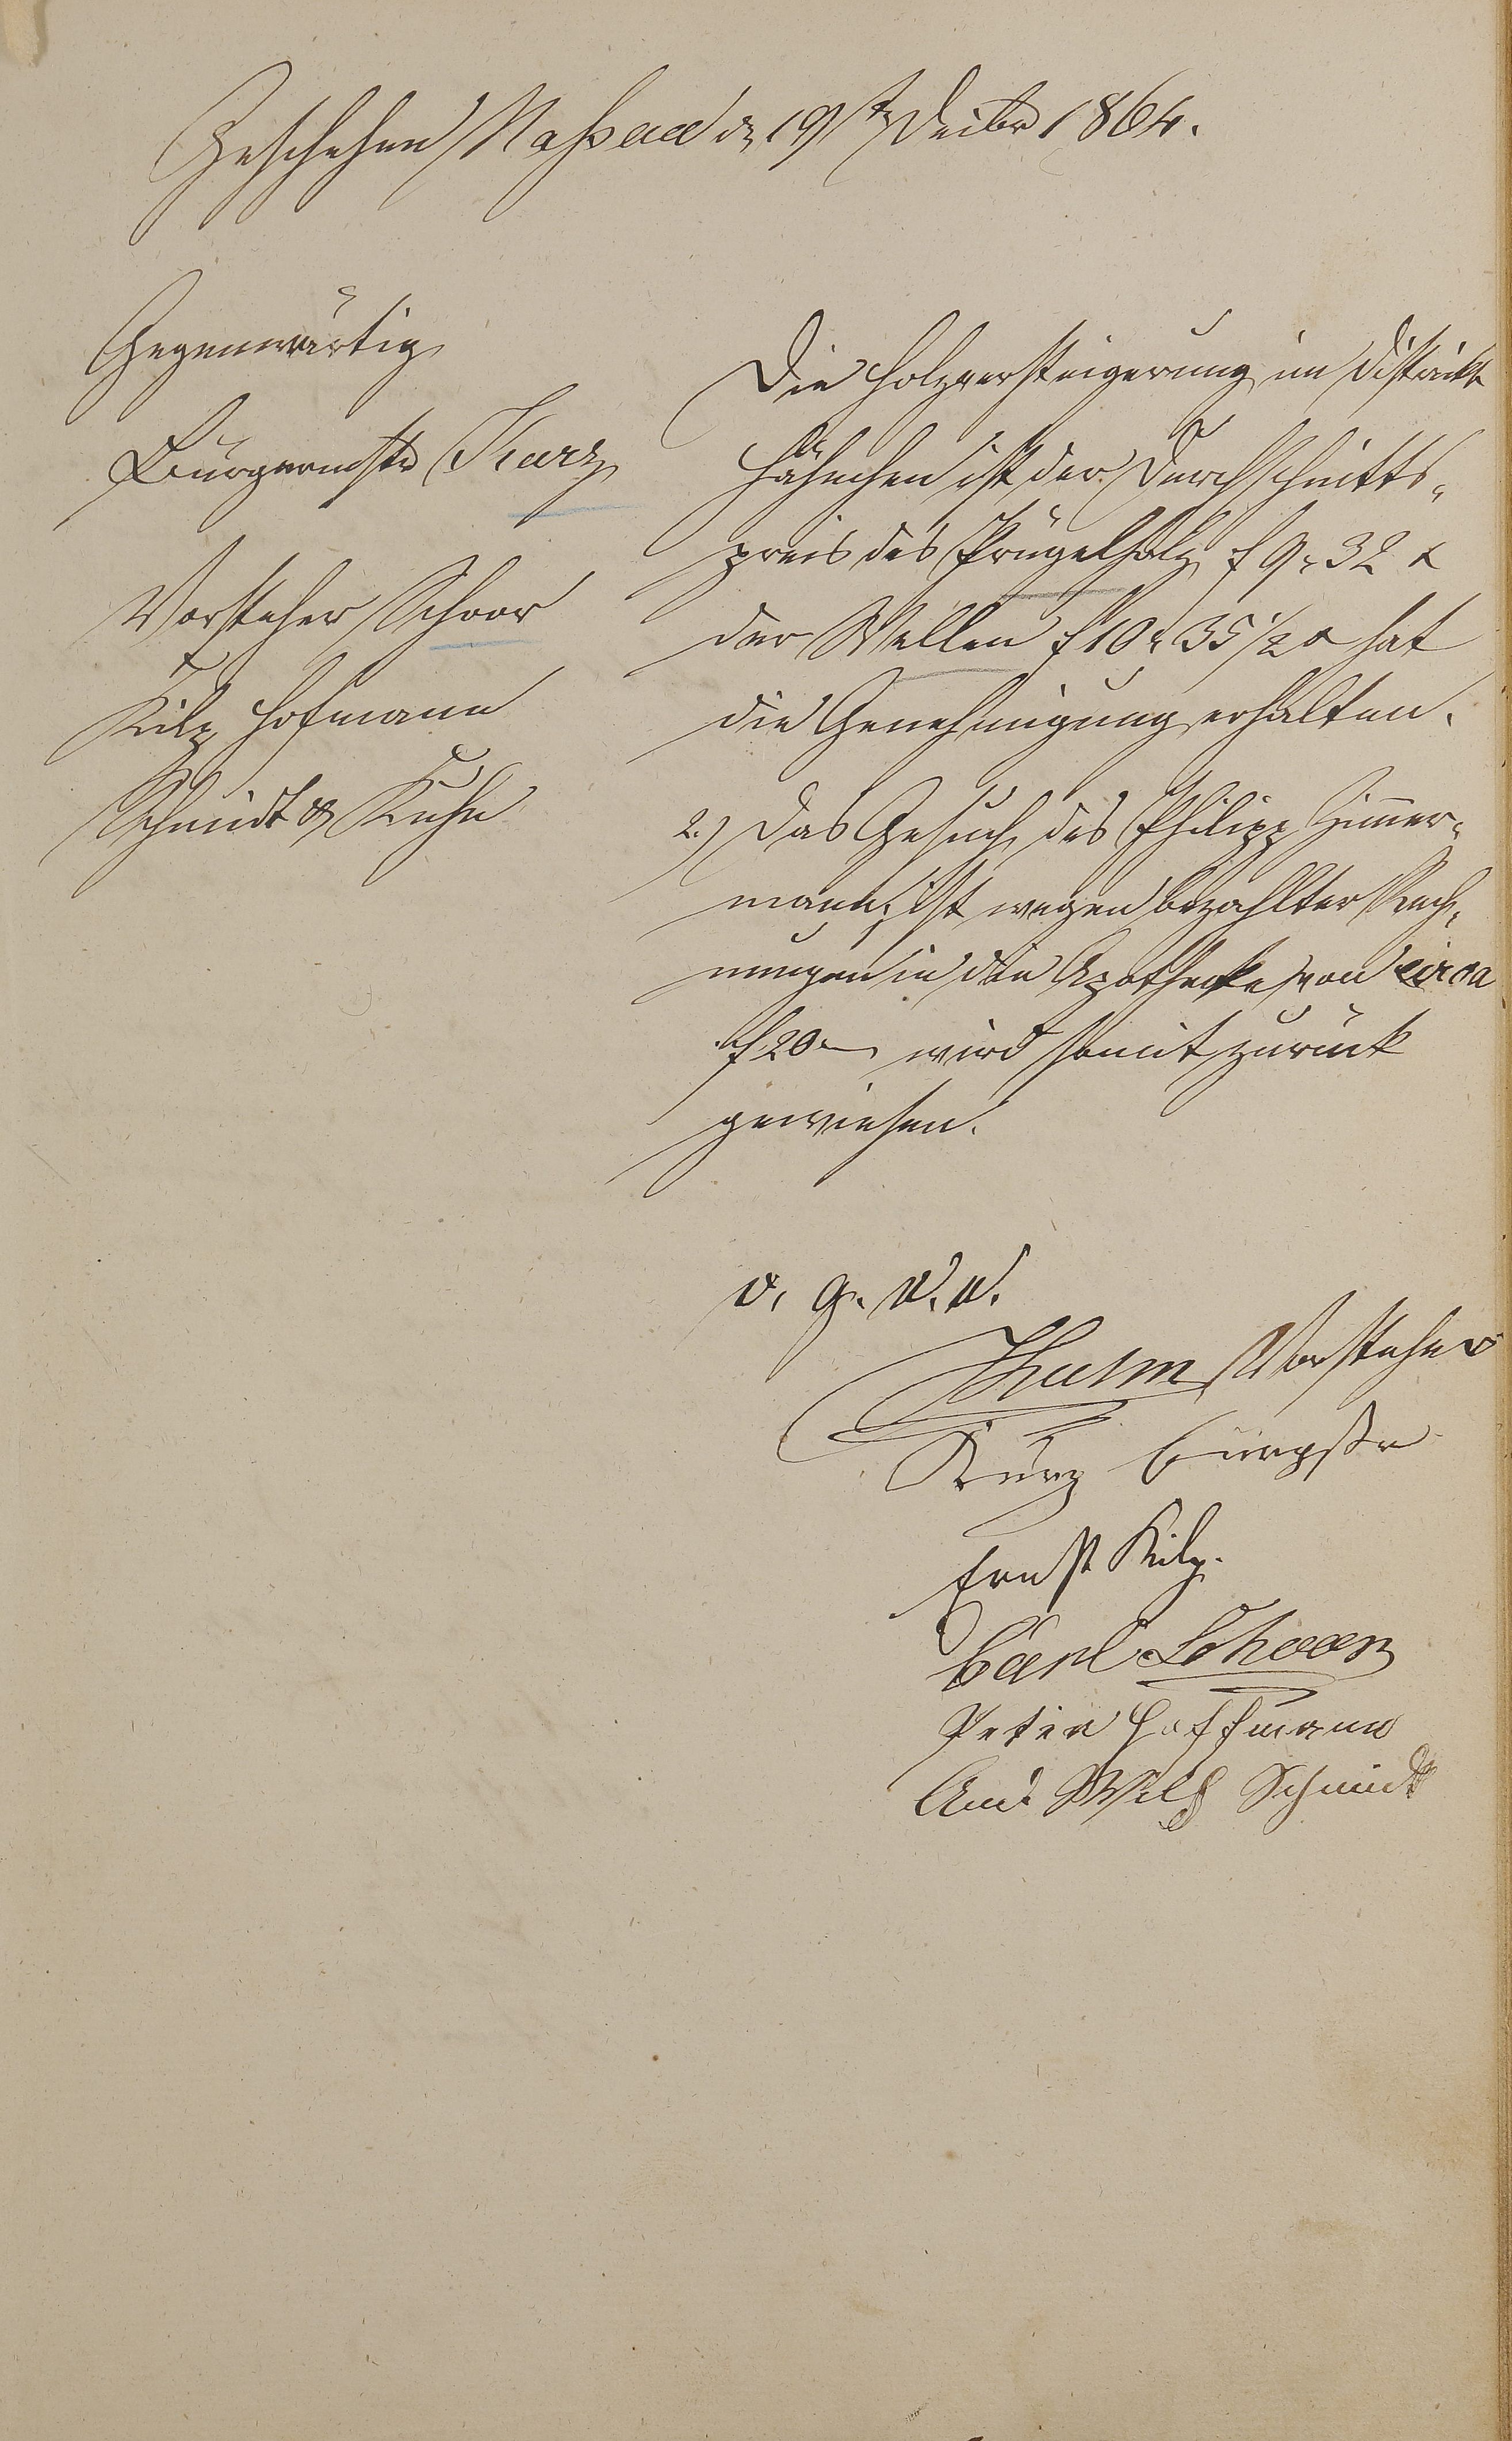 Geschehen Naßau d. 19t Decbr 1864.
Gegenwärtig
Bürgermstr Kurz
Vorsteher Schoor
Kilp Hofmann
Schmidt & Kuhn
Die Holzversteigerung im District
Hähnchen ist der Durchschnitts-
preis des Prügelholz f 9 „ 32 x
der Wellen f 10 „ 35 1/2 x hat
die Genehmigung erhalten.
2.) Das Gesuch des Philipp Zimer-
mann, ist wegen bezahlter Rech-
nungen in die Apotheke von circa
f 20 — wird somit zurück
gewiesen.
v. g. u. u.
Vorsteher
Kurz Bürgstr
Ernst Kilp.
Carl Schoor
Peter Hoffmann
And. Wilh Schmidt